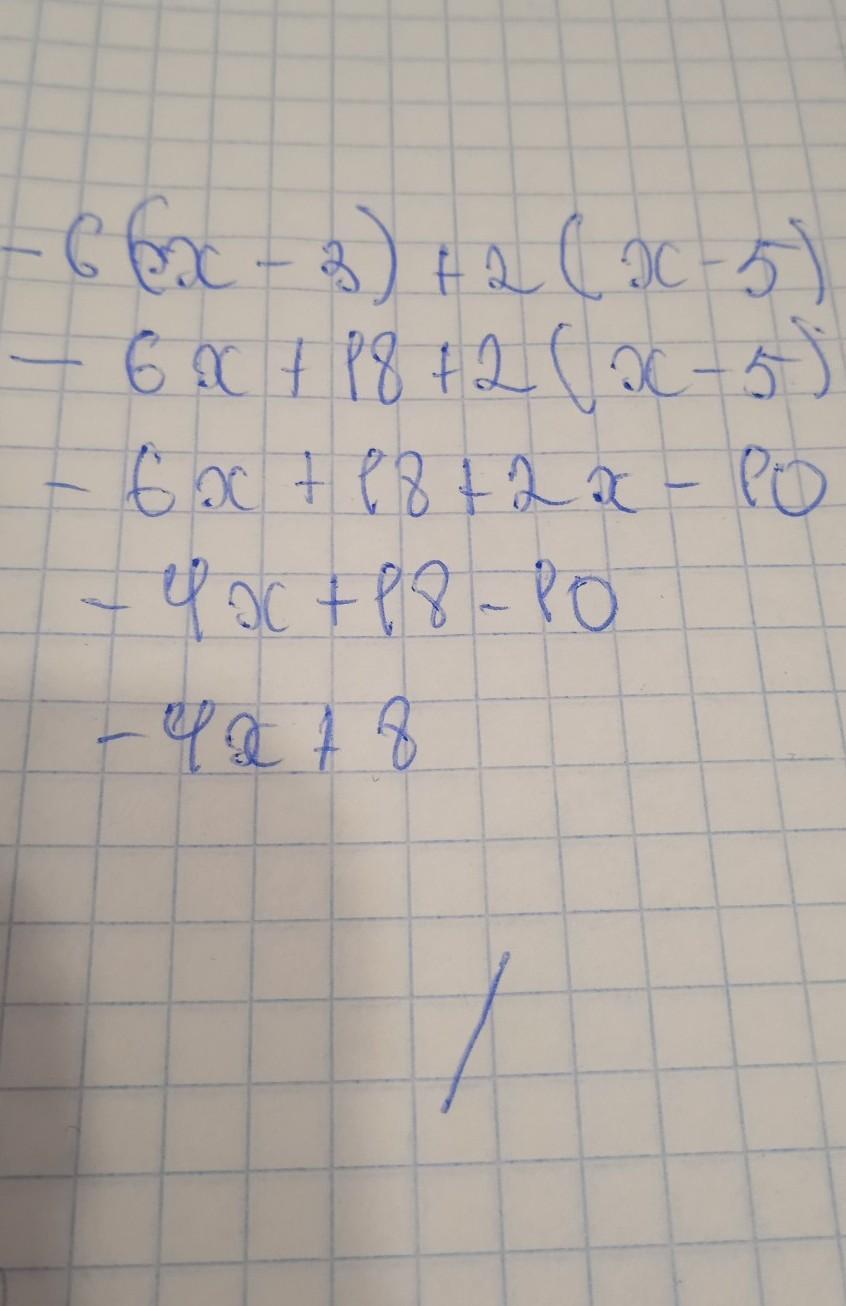 - 6(6x - 3) + 2(x - 5)
- 6x + 18 + 2(x - 5)
- 6x + 18 + 2x - 10
- 4x + 18 - 10
- 4x + 8
/